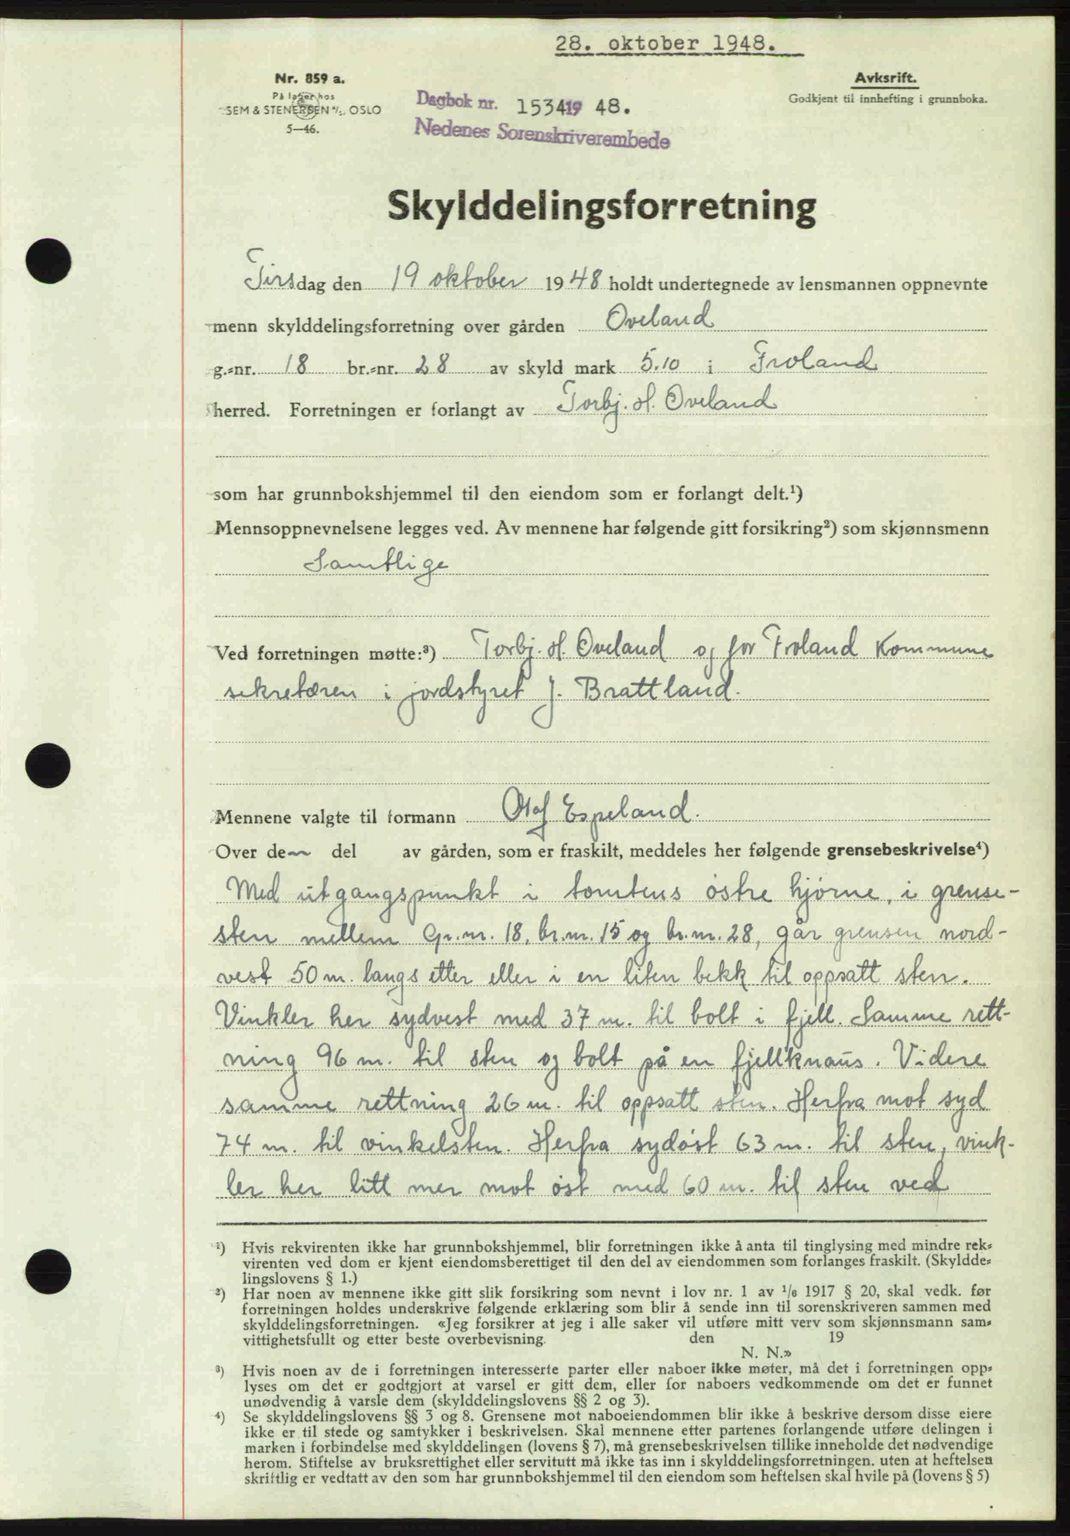 28. oktober 1948.
Nr. 859 a.
På lager hos
SEM & STENERSEN A/S, OSLO
5—46.
Dagbok nr. 1534 19 48.
Nedenes Sorenskriverembede
Avksrift.
Godkjent til innhefting i grunnboka.
Skylddelingsforretning
Tirsdag den 19 oktober 1948 holdt undertegnede av lensmannen oppnevnte
menn skylddelingsforretning over gården Oveland
g.-nr. 18 br.-nr. 28 av skyld mark 5.10 i Froland
herred. Forretningen er forlangt av Torbj. H. Oveland
som har grunnbokshjemmel til den eiendom som er forlangt delt.¹)
Mennsoppnevnelsene legges ved. Av mennene har følgende gitt forsikring²) som skjønnsmenn
Samtlige
Ved forretningen møtte:³) Torbj. H. Oveland og for Froland Kommune
sekretæren i jordstyret J. Brattland.
Mennene valgte til formann Olaf Espeland.
Over de~ del av gården, som er fraskilt, meddeles her følgende grensebeskrivelse⁴)
Med utgangspunkt i tomtens östre hjörne, i grense-
sten mellem Gr.nr. 18, br.nr. 15 og br.nr. 28, går grensen nord-
vest 50 m. langs etter eller i en liten bekk til oppsatt sten.
Vinkler her sydvest med 37 m. til bolt i fjell. Samme rett-
ning 96 m. til sten og bolt på en fjellknaus. Videre
samme rettning 26 m. til oppsatt sten. Herfra mot syd
74 m. til vinkelsten. Herfra sydöst 63 m. til sten, vink-
ler her litt mer mot öst med 60 m. til sten ved
¹) Hvis rekvirenten ikke har grunnbokshjemmel, blir forretningen ikke å anta til tinglysing med mindre rek-
virenten ved dom er kjent eiendomsberettiget til den del av eiendommen som forlanges fraskilt. (Skyldde-
lingslovens § 1.)
²) Har noen av mennene ikke gitt slik forsikring som nevnt i lov nr. 1 av 1/6 1917 § 20, skal vedk. før
forretningen holdes underskrive følgende erklæring som blir å sende inn til sorenskriveren sammen med
skylddelingsforretningen. «Jeg forsikrer at jeg i alle saker vil utføre mitt verv som skjønnsmann sam-
vittighetsfullt og etter beste overbevisning. den 19
N. N.»
³) Hvis noen av de i forretningen interesserte parter eller naboer ikke møter, må det i forretningen opp-
lyses om det er godtgjort at varsel er gitt dem, eller for naboers vedkommende om det er funnet
unødvendig å varsle dem (skylddelingslovens §§ 2 og 3).
⁴) Se skylddelingslovens §§ 3 og 8. Grensene mot naboeiendommen blir ikke å beskrive dersom disse eiere
ikke er til stede og samtykker i beskrivelsen. Skal mennene etter partenes forlangende utføre delingen i
marken i forbindelse med skylddelingen (lovens § 7), må grensebeskrivelsen tillike inneholde det nødvendige
herom. Stiftelse av bruksrettighet eller servitutt må ikke tas inn i skylddelingsforretningen. uten at heftelsen
skriftlig er vedtatt av den som har grunnbokshjemmel til den eiendom som heftelsen skal hvile på (lovens § 5)